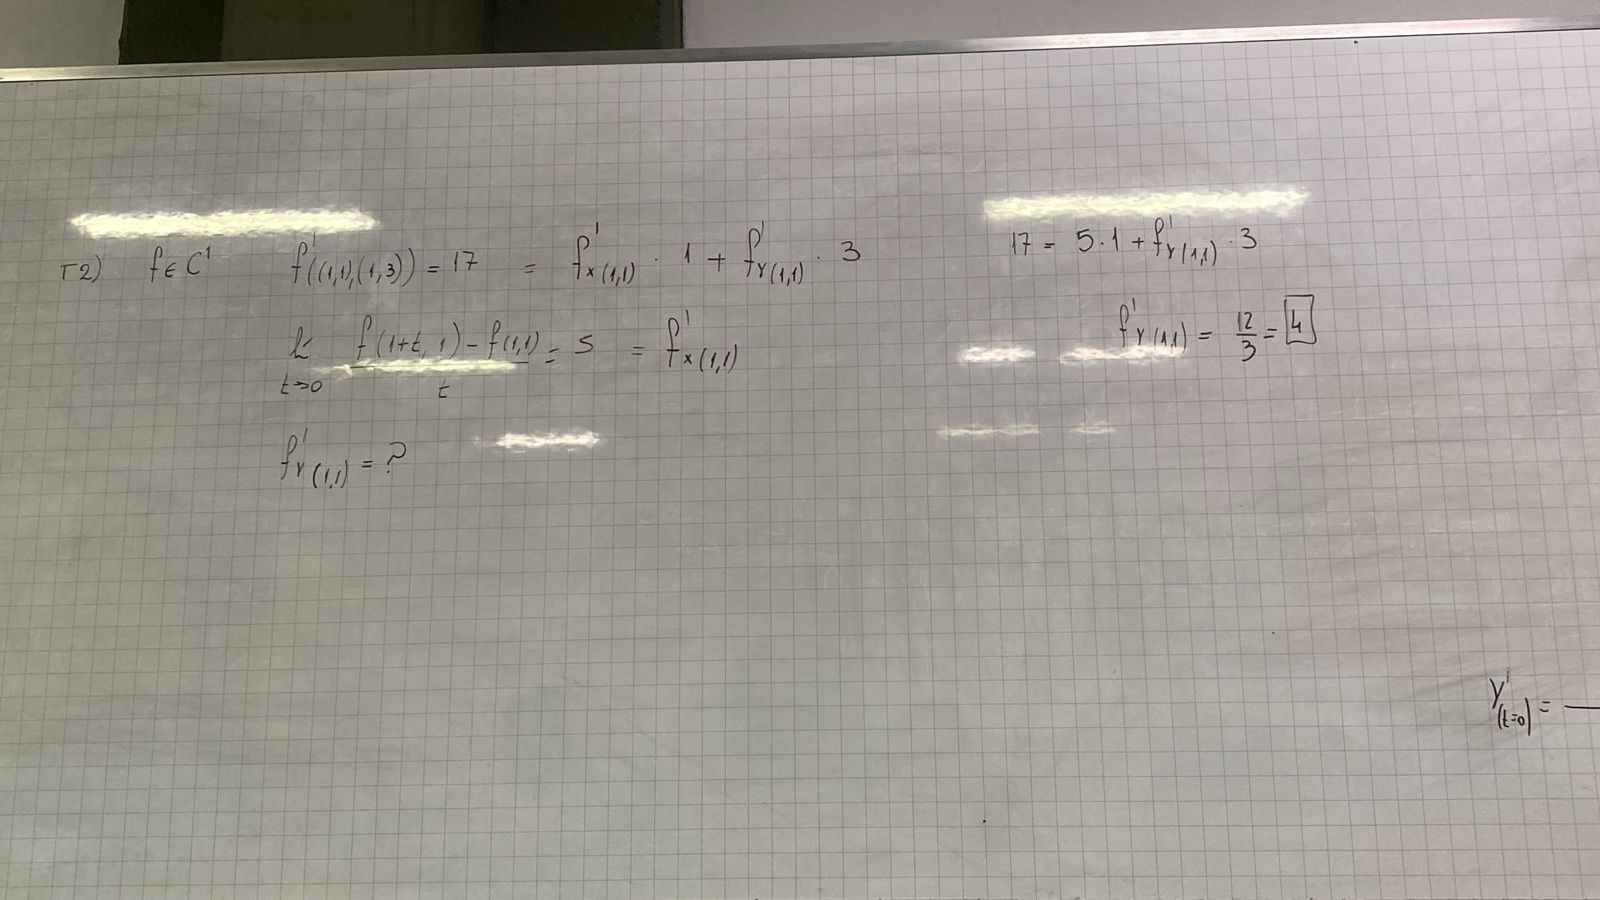 T2) f ∈ C¹ f'((1,1),(1,3)) = 17 = f'x(1,1) · 1 + f'y(1,1) · 3
lim t→0 f(1+t, 1) - f(1,1) / t = 5 = f'x(1,1)
f'y(1,1) = ?
17 = 5·1 + f'y(1,1) · 3
f'y(1,1) = 12/3 = 4
y'(t=0) =